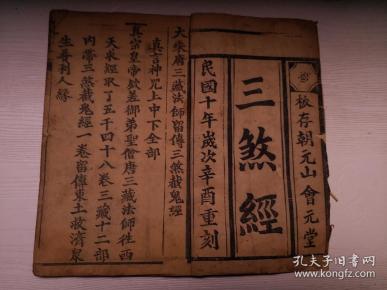 板存朝元山會元堂
三煞經
民國十年歲次辛酉重刻
大宋唐三藏法師留傳三煞截鬼經
真言神咒上中下全部
真宗皇帝欽差御弟聖僧唐三藏法師往西
天求經取了五千四十八卷三藏十二部
內帶三煞截鬼經一卷留傳東土救濟眾
生普利人緣
孔夫子旧书网